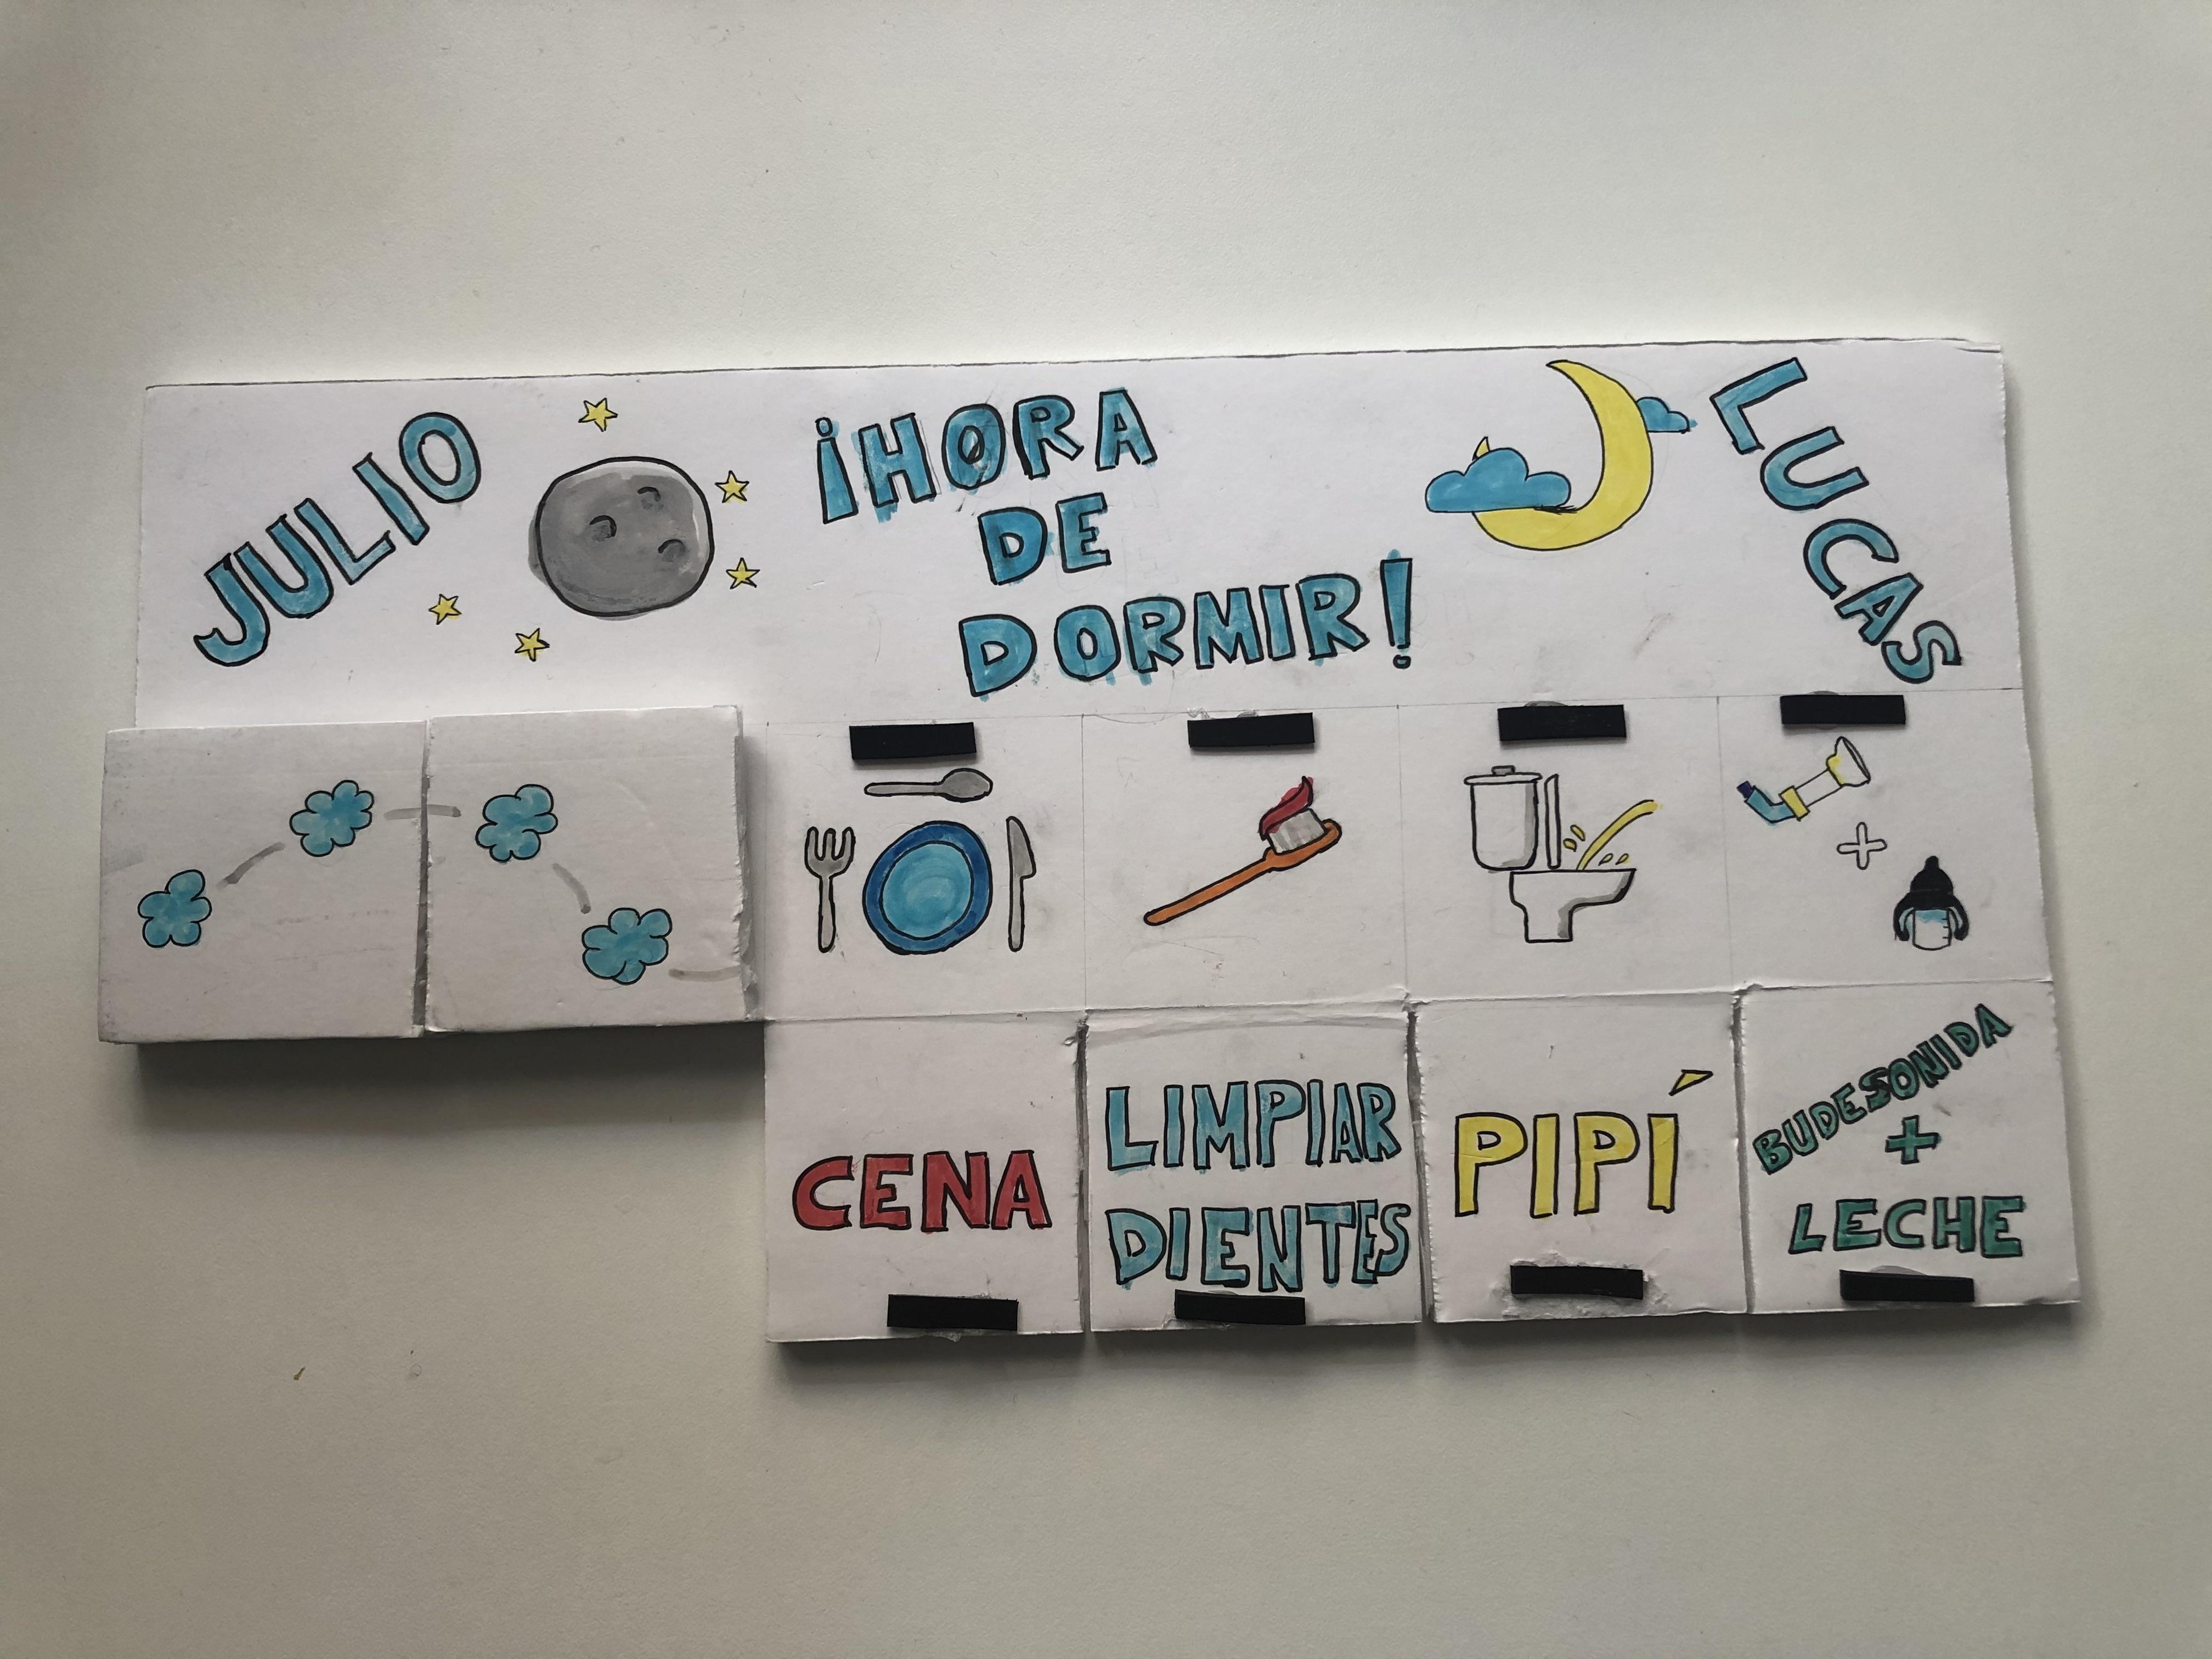 JULIO
¡HORA
DE
DORMIR!
LUCAS
CENA
LIMPIAR
DIENTES
PIPÍ
BUDESONIDA
+
LECHE